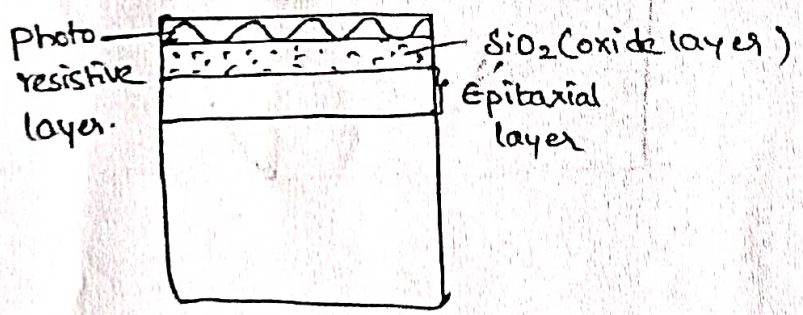 Photo
resistive
layer.
SiO2 (oxide layer)
Epitaxial
layer